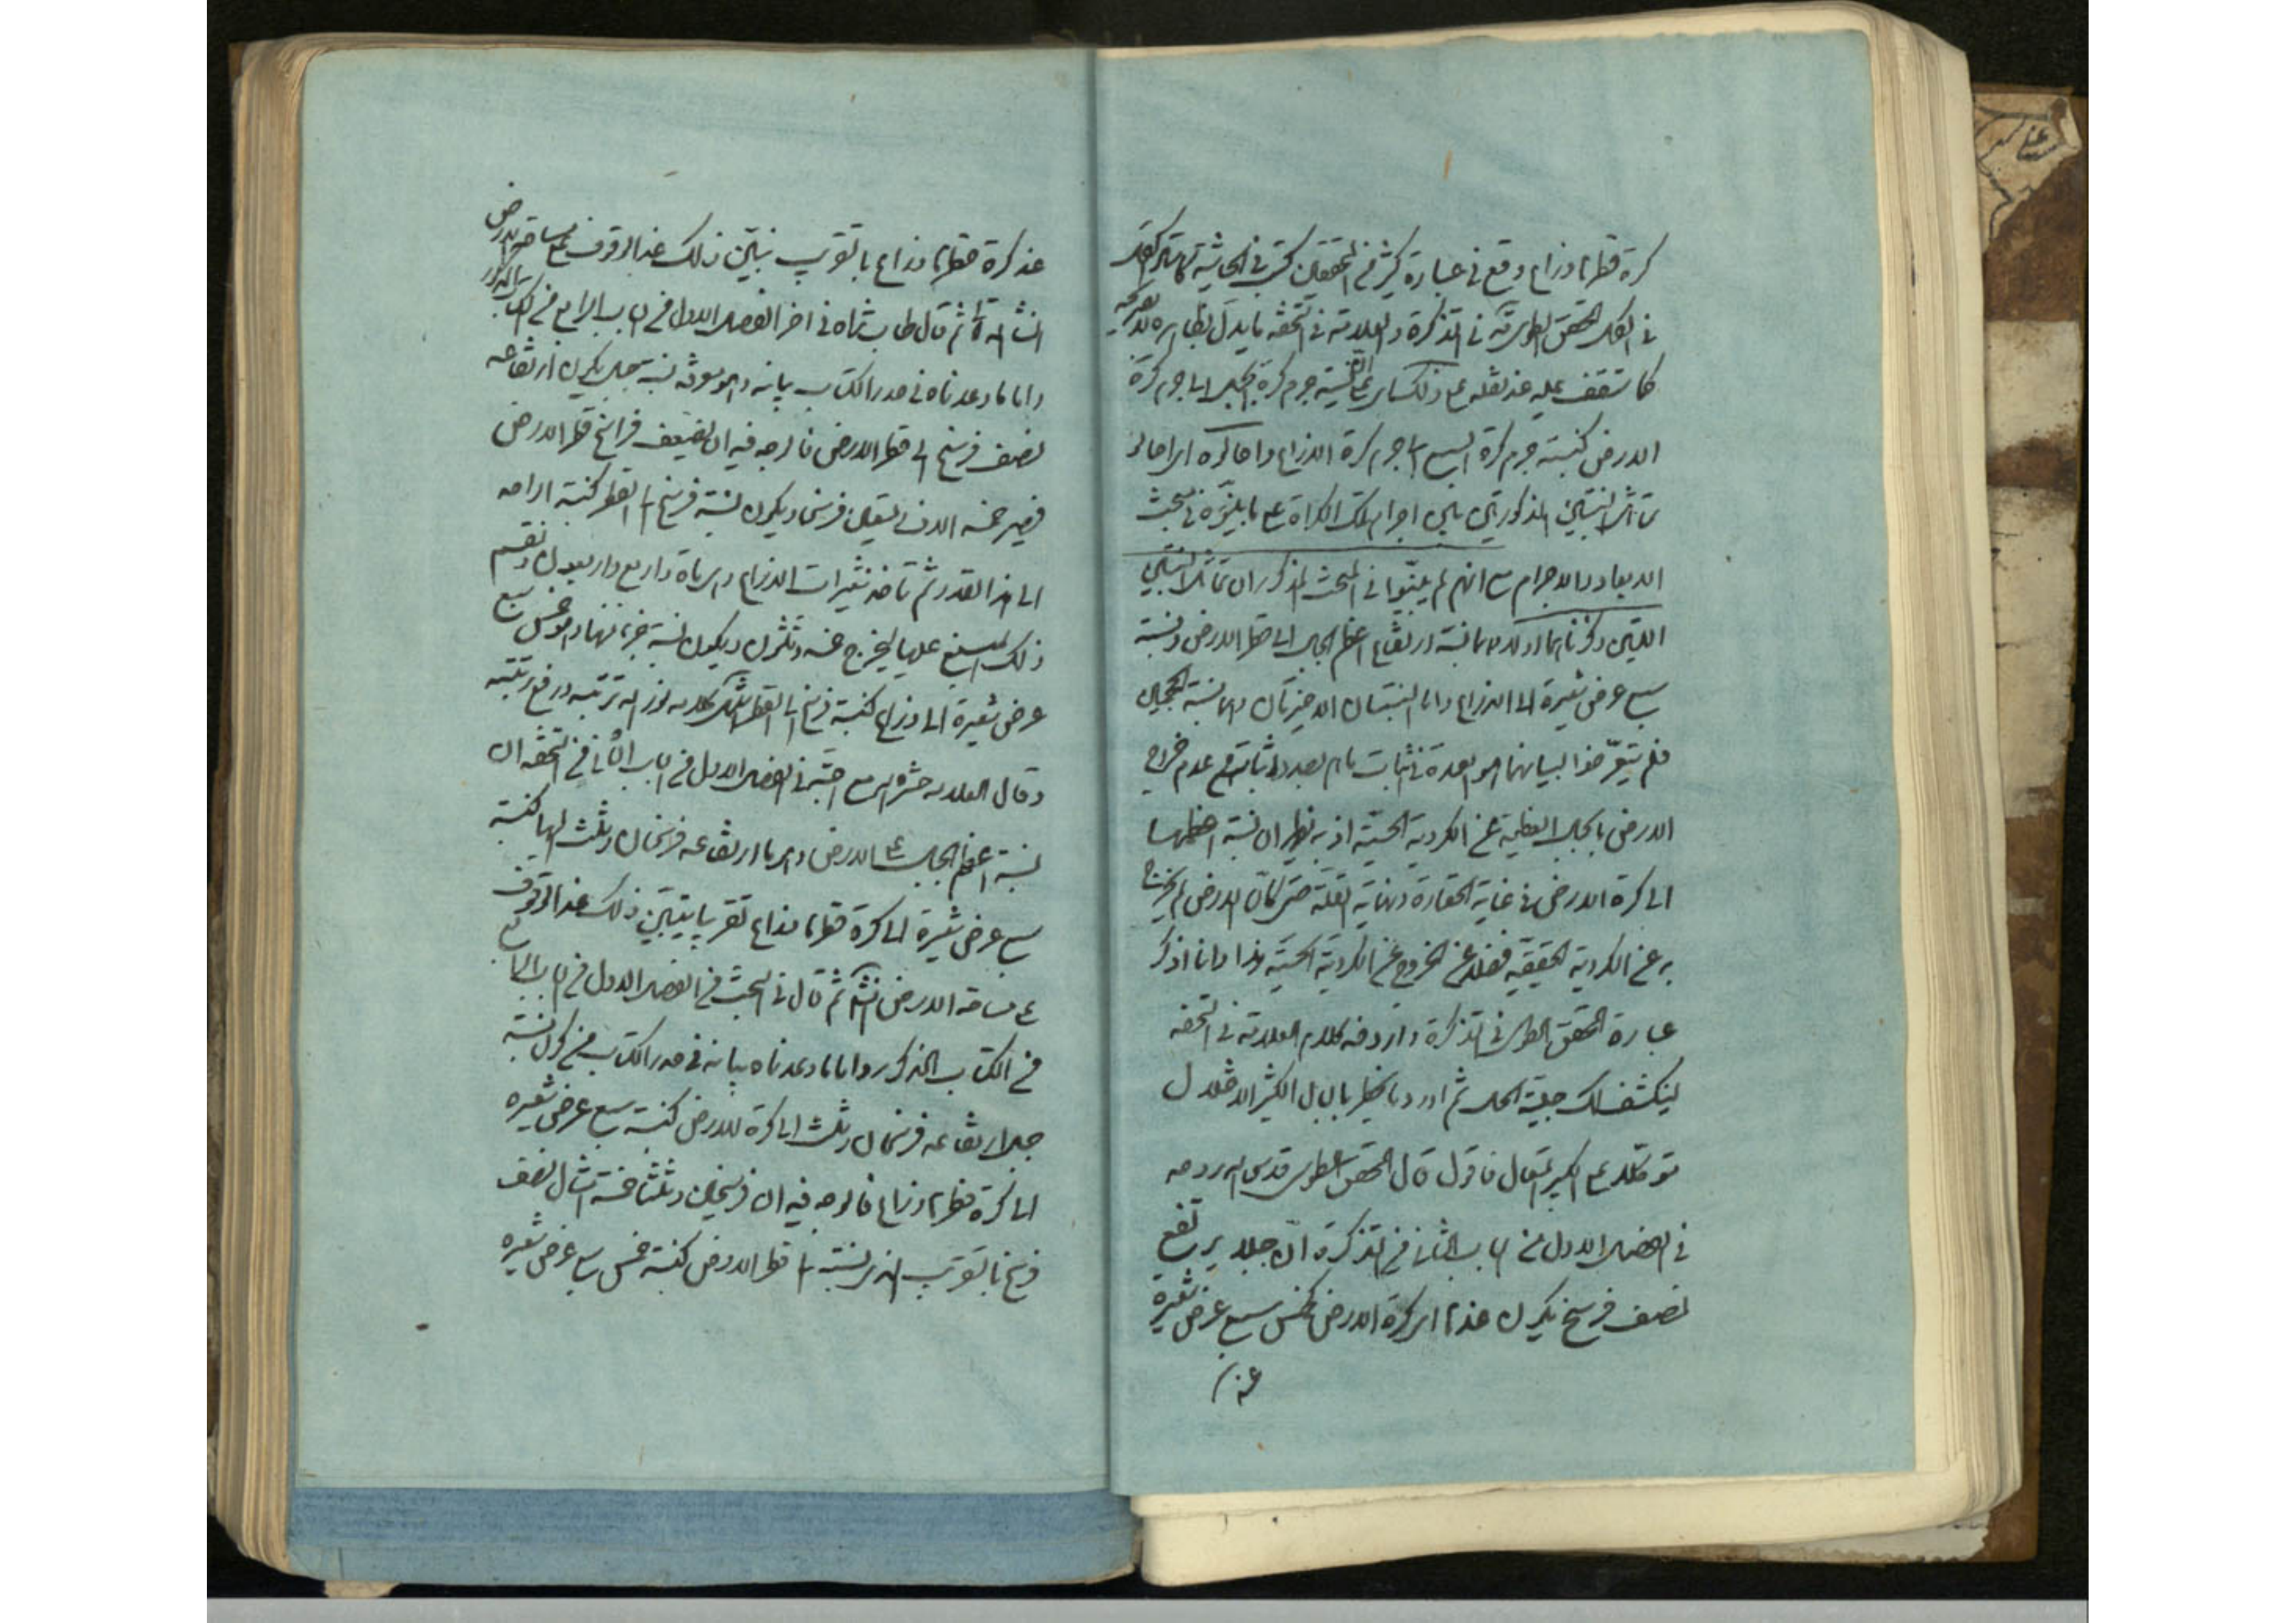 كرة قطرها ذراع وقع في عبارة كثير من المحققين
في الفلك المحقق الطوسي في التذكرة والعلامة في التحفة ما يدل بظاهره
كما ستقف عليه عند نقله مع ذلك نسبة جرم كرة الجبل الى جرم كرة
الارض كنسبة جرم كرة السبع الى جرم كرة الذراع
تماثل النسبتين المذكورتين بين اجرام تلك الكرات على ما بينوه في مبحث
الابعاد والاجرام مع انهم لم يبينوا في المبحث المذكور ان تماثل النسبتين
اللتين ذكرناهما اولا وهما نسبة ارتفاع اعظم الجبال الى قطر الارض ونسبة
سبع عرض شعيرة الى الذراع واما النسبتان الاخيرتان
فلم يتعرضوا لبيانهما هو العمدة في اثبات ما هم بصدد اثباته من عدم خروج
الارض بالجبال العظيمة عن الكروية الحسية اذ به يظهر ان نسبة اعظمها
الى كرة الارض في غاية الحقارة ونهاية القلة حتى كان الارض لم يخرج
به عن الكروية الحقيقية فضلا عن الخروج عن الكروية الحسية هذا وانا اذكر
عبارة المحقق الطوسي في التذكرة واردفه بكلام العلامة في التحفة
لينكشف لك حقيقة الحال ثم اورد ما يخطر بالبال الكثير الاختلال
متوكلا على الكبير المتعال فاقول قال المحقق الطوسي قدس الله روحه
في الفصل الاول من الباب الثاني من التذكرة ان جبلا يرتفع
نصف فرسخ يكون عندها اي كرة الارض كخمس سبع عرض شعيرة
عند
عند كرة قطرها ذراع بالتقريب نبين ذلك عند الوقوف على مساحة الارض
انشاء الله تعالى ثم قال طاب ثراه في اخر الفصل الاول من الباب الرابع من الكتاب المذكور
واما ما وعدناه في صدر الكتاب بيانه وهو معرفة نسبة جبل يكون ارتفاعه
نصف فرسخ الى قطر الارض فالوجه فيه ان يضعف فراسخ قطر الارض
فيصير خمسة الاف وتسعين فرسخا ويكون نسبة فرسخ الى القطر كنسبة الواحد
الى هذا القدر ثم تاخذ شعيرات الذراع وهي مائة واربع واربعون ونقسم
ذلك المبلغ عليها ليخرج خمسة وثلثون ويكون نسبة جزء منها وهو خمس سبع
عرض شعيرة الى ذراع كنسبة فرسخ الى القطر انتهى كلامه نور الله تربته ورفع رتبته
وقال العلامة حشره الله مع احبته في الفصل الاول من الباب الثاني من التحفة ان
نسبة اعظم الجبال على الارض وهو ما ارتفاعه فرسخان وثلث اليها كنسبة
سبع عرض شعيرة الى كرة قطرها ذراع تقريبا يتبين ذلك عند الوقوف
على مساحة الارض انشاء ثم قال في المبحث من الفصل الاول من الباب الرابع
من الكتاب المذكور واما ما وعدناه بيانه في صدر الكتاب من كون نسبة
جبل ارتفاعه فرسخان وثلث الى كرة الارض كنسبة سبع عرض شعيرة
الى كرة قطرها ذراع فالوجه فيه ان فرسخين وثلثا خمسة امثال نصف
فرسخ بالتقريب الذي نسبته الى قطر الارض كنسبة خمس سبع عرض شعيرة